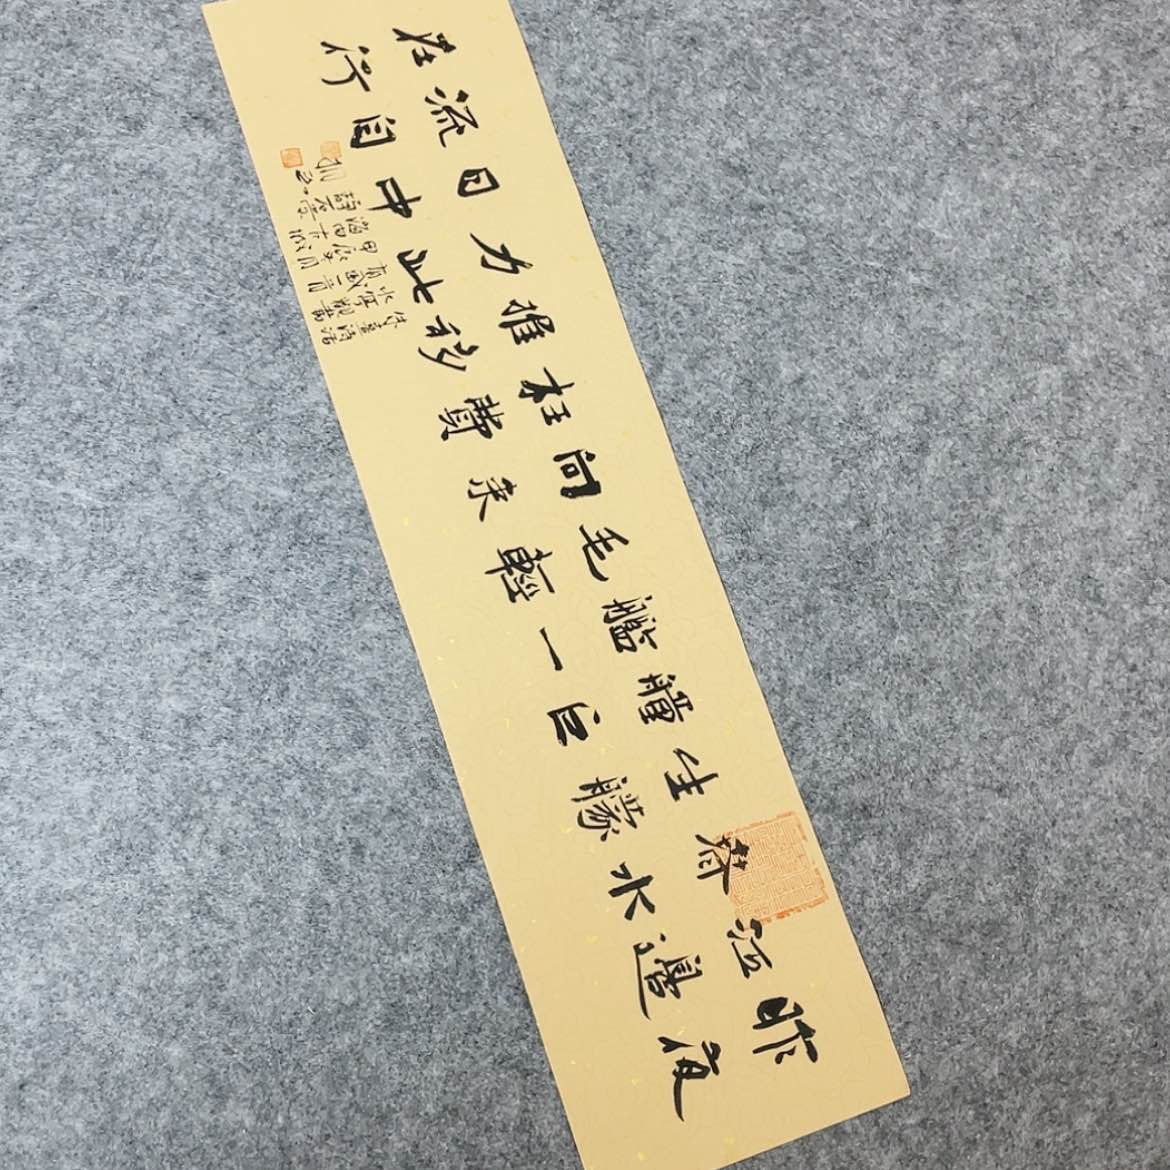 昨夜
江邊
春水
生艨
艟巨
艦一
毛輕
向來
枉費
推移
力此
日中
流自
在行
朱熹詩活
水亭觀書
有感二
甲辰